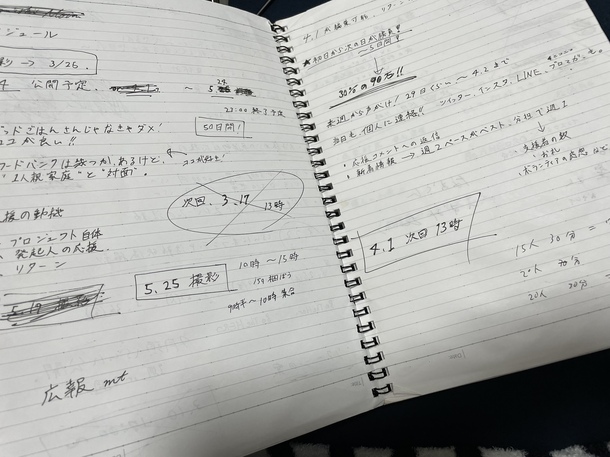 ジュール
影 → 3/25.
公開予定. ~ 5
24
23:00 終了予定
50日間!
ッドごはんさんじゃなきゃダメ!
ココが良い!!
フードバンクは幾つか、あるけど、 ← ココが好き!
"1人親家庭" と "対面".
次回. 3.17 13時
援の動機
プロジェクト自体
発起人の応援.
リターン
5.25 撮影
10時 ~ 15時
9時半 ~ 10時 集合
5.19 撮影
広報 mt
★初日から次の日が勝負!!
~5日間!
30%の90%!!
来週から声かけ! 29日くらい ~ 4.2まで
当日も個人に連絡!! ツイッター、インスタ、LINE、
・応援コメントへの返信
・新着情報 → 週2ペースがベスト. 分担で週1
支援者の数
お礼
ボランティアの感想など
4.1 次回 13時
15人 30分 =
20人 30分
20人 20分